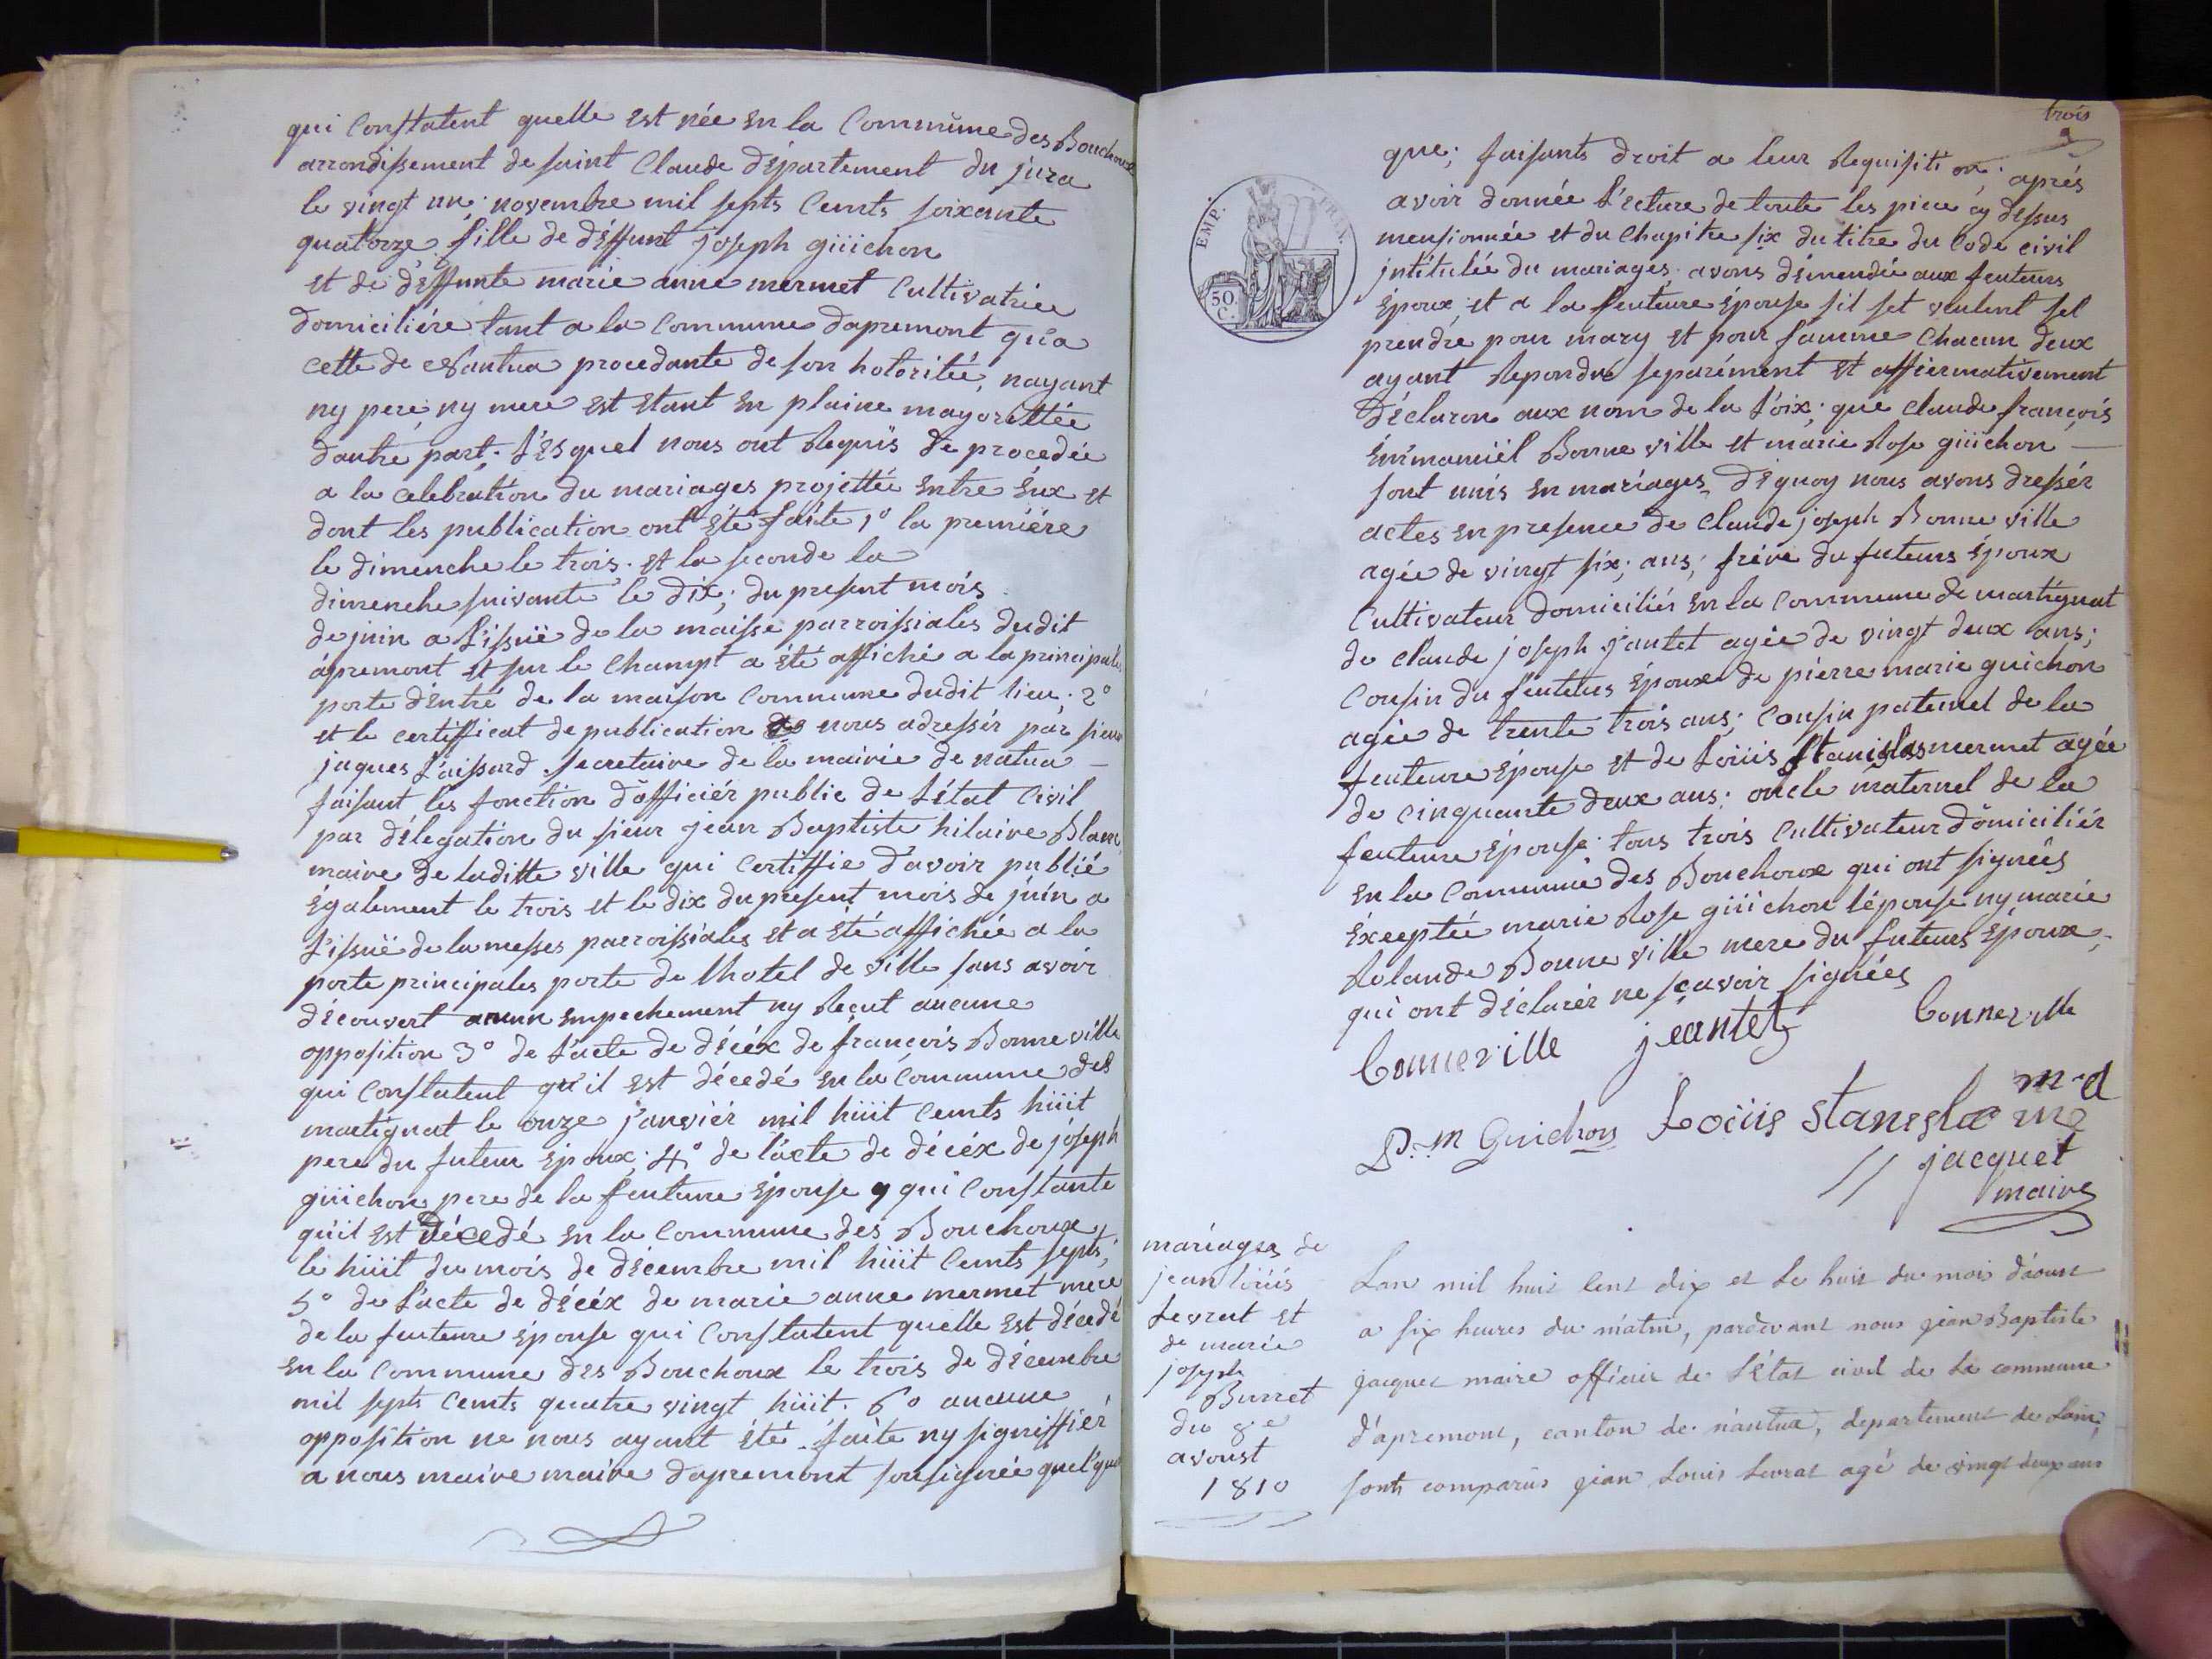 qui Constatent quelle est née en la Commune des Bouchoux
arrondissement de saint Claude département du jura
le vingt un; novembre mil septs Cemts soixante
quatorze, fille de déffunt joseph güichon
et de deffunte marie anne mermet Cultivatrice
domiciliére tant a la Commune dapremont qu'a
cette de Nantua procedante de son hotoritée, nayant
ny pere ny mere est étant en plaine mayorettée
dautre part; Lesquel nous ont Requis de procedée
a la celebration du mariages projettée entre eux et
dont les publication ont été faite 1° la premiére
le dimenche le trois. et la seconde la
dimenche suivante le dix; du present mois
de juin a L'issuë de la maisse parroissiales dudit
apremont et sur le Champt a été affiché a la principale
porte d'entré de la maison Commune dudit lieu; 2°
et le certifficat de publication de nous adressér par sieur
jaques Laissard secretaire de la mairie de natua
faisant les fonction d'officiér public de L'état Civil
par délegation du sieur jean Baptiste hilaire Blanc
maire de laditte ville qui Certiffie d'avoir publié
également le trois et le dix du present mois de juin a
L'issuë de la messes parroissiales et a été affichée a la
porte principales porte de lhotel de ville sans avoir
découvert aucun empechement ny Reçut aucune
opposition 3° de L'acte de décéx de françois Bonneville
qui Constatent qu'il est décedé en la Commune des
martignat le onze janviér mil hüit Cemts hüit
pere du futeur époux; 4° de l'acte de décéx de joseph
güichon pere de la feuteure épouse qui Constante
qu'il est décedé en la Commune des Bouchoux
le hüit du mois de décembre mil hüit Cemts septs;
5° de L'acte de décéx de marie anne mermet mere
de la feuteure épouse qui Constatent quelle est décedé
en la Commune des Bouchoux le trois de décembre
mil septs Cemts quatre vingt hüit. 6° aucune
opposition ne nous ayant été faite ny signiffiér
a nous maire maire dapremont sousignée quel'que
trois
que; faisants droit a leur Requisition. aprés
avoir donnée L'ecture de toute les piece cy dessus
mensionnée et du Chapitre six du titre du Code civil
jntitulée du mariages. avons démendée aux feuteurs
époux, et a la feuteure épouse sil set veulent set
prendre pour mary et pour famme Chacun deux
ayant Repondre separément et affiermativement
Déclaron aux nom de la Loix; que claude françois
émmanuël Bonne ville et marie Rose güichon
sont unis en mariages, déquoy nous avons dressér
actes en presence de Claude joseph Bonne ville
agée de vingt six; ans; frére du futeurs époux
Cultivateur domiciliér en la Commune de martignat
de claude joseph jantet agée de vingt deux ans;
Cousin du feuteurs époux de piérre marie guichon
agée de trente trois ans; Cousin paternel de la
feuteure épouse et de Loüis stanislas mermet agée
de cinquante deux ans; oncle maternel de la
feuteure épouse. tous trois Cultivateur domiciliér
en la Commune des Bouchoux qui ont signées
éxceptée marie Rose güichon lépouse ny marie
Rolande Bonne ville mere du futeurs époux;
qui ont déclarér ne sçavoir signées
bonneville jeantet bonneville
P.m Guichon Loüis stanislas m
jacquet
maire
mariages de
jean loüis
Levrat et
de marie
joseph
Burret
du 8e
avoust
1810
Lan mil huit cent dix et le huit du mois d'aoust
a six heures du matin, pardevant nous jean Baptiste
jacquet maire officier de l'état civil de la commune
d'apremont, canton de nantua, departement de Lain,
sont comparus jean Louis Levrat agé de vingt deux ans
EMP. FRAN.
50.
C.